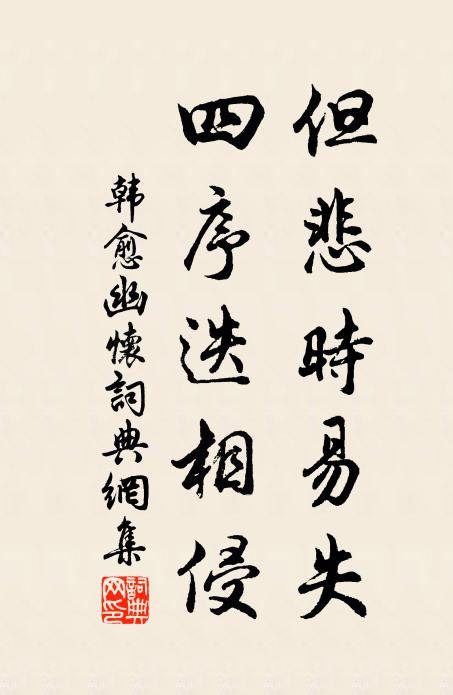 但悲時易失
四序迭相侵
韩愈幽懷詞典網集